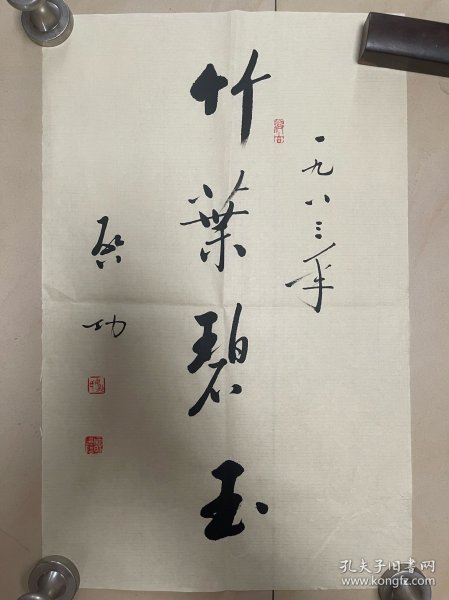 一九八三年
竹葉碧玉
啓功
孔夫子旧书网
www.kongfz.com